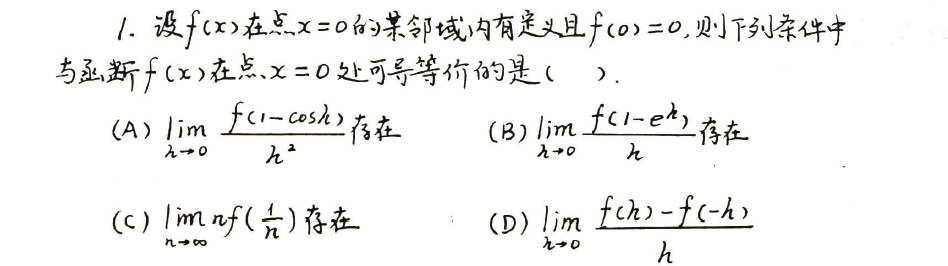 1. 设f(x)在点x=0的某邻域内有定义且f(0)=0,则下列条件中
与函数f(x)在点x=0处可导等价的是( ).
(A) lim_{h→0} f(1-cosh)/h² 存在 (B) lim_{h→0} f(1-e^h)/h 存在
(C) lim_{n→∞} nf(1/n) 存在 (D) lim_{h→0} f(h)-f(-h)/h